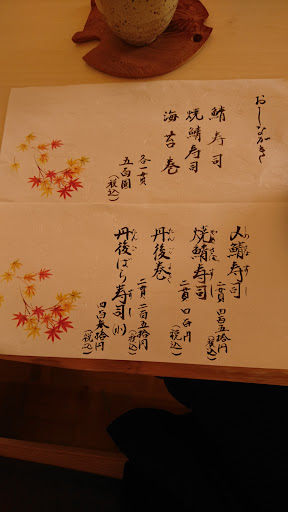 おしながき
鯖寿司
焼鯖寿司
海苔巻
各一貫
五百圓(税込)
〆鯖寿司
二貫 四百五拾円
(税込)
焼鯖寿司
二貫 四百円
(税込)
丹後巻
二貫 二百五拾円
(税込)
丹後ばら寿司(小)
四百参拾円
(税込)